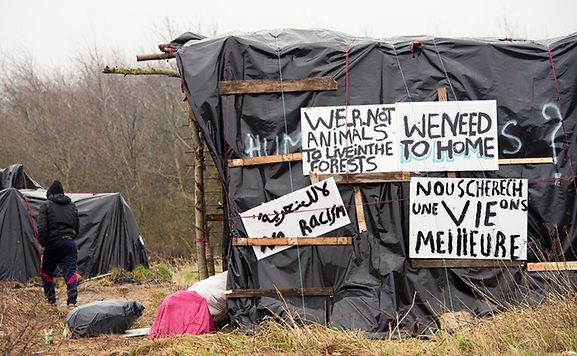 WE.R.NOT
ANIMALS
TO LIVE IN THE
FORESTS
WE NEED
TO HOME
NO RACISM
NOUS CHERECH
UNE VIE ONS
MEILLEURE
HUM
S?